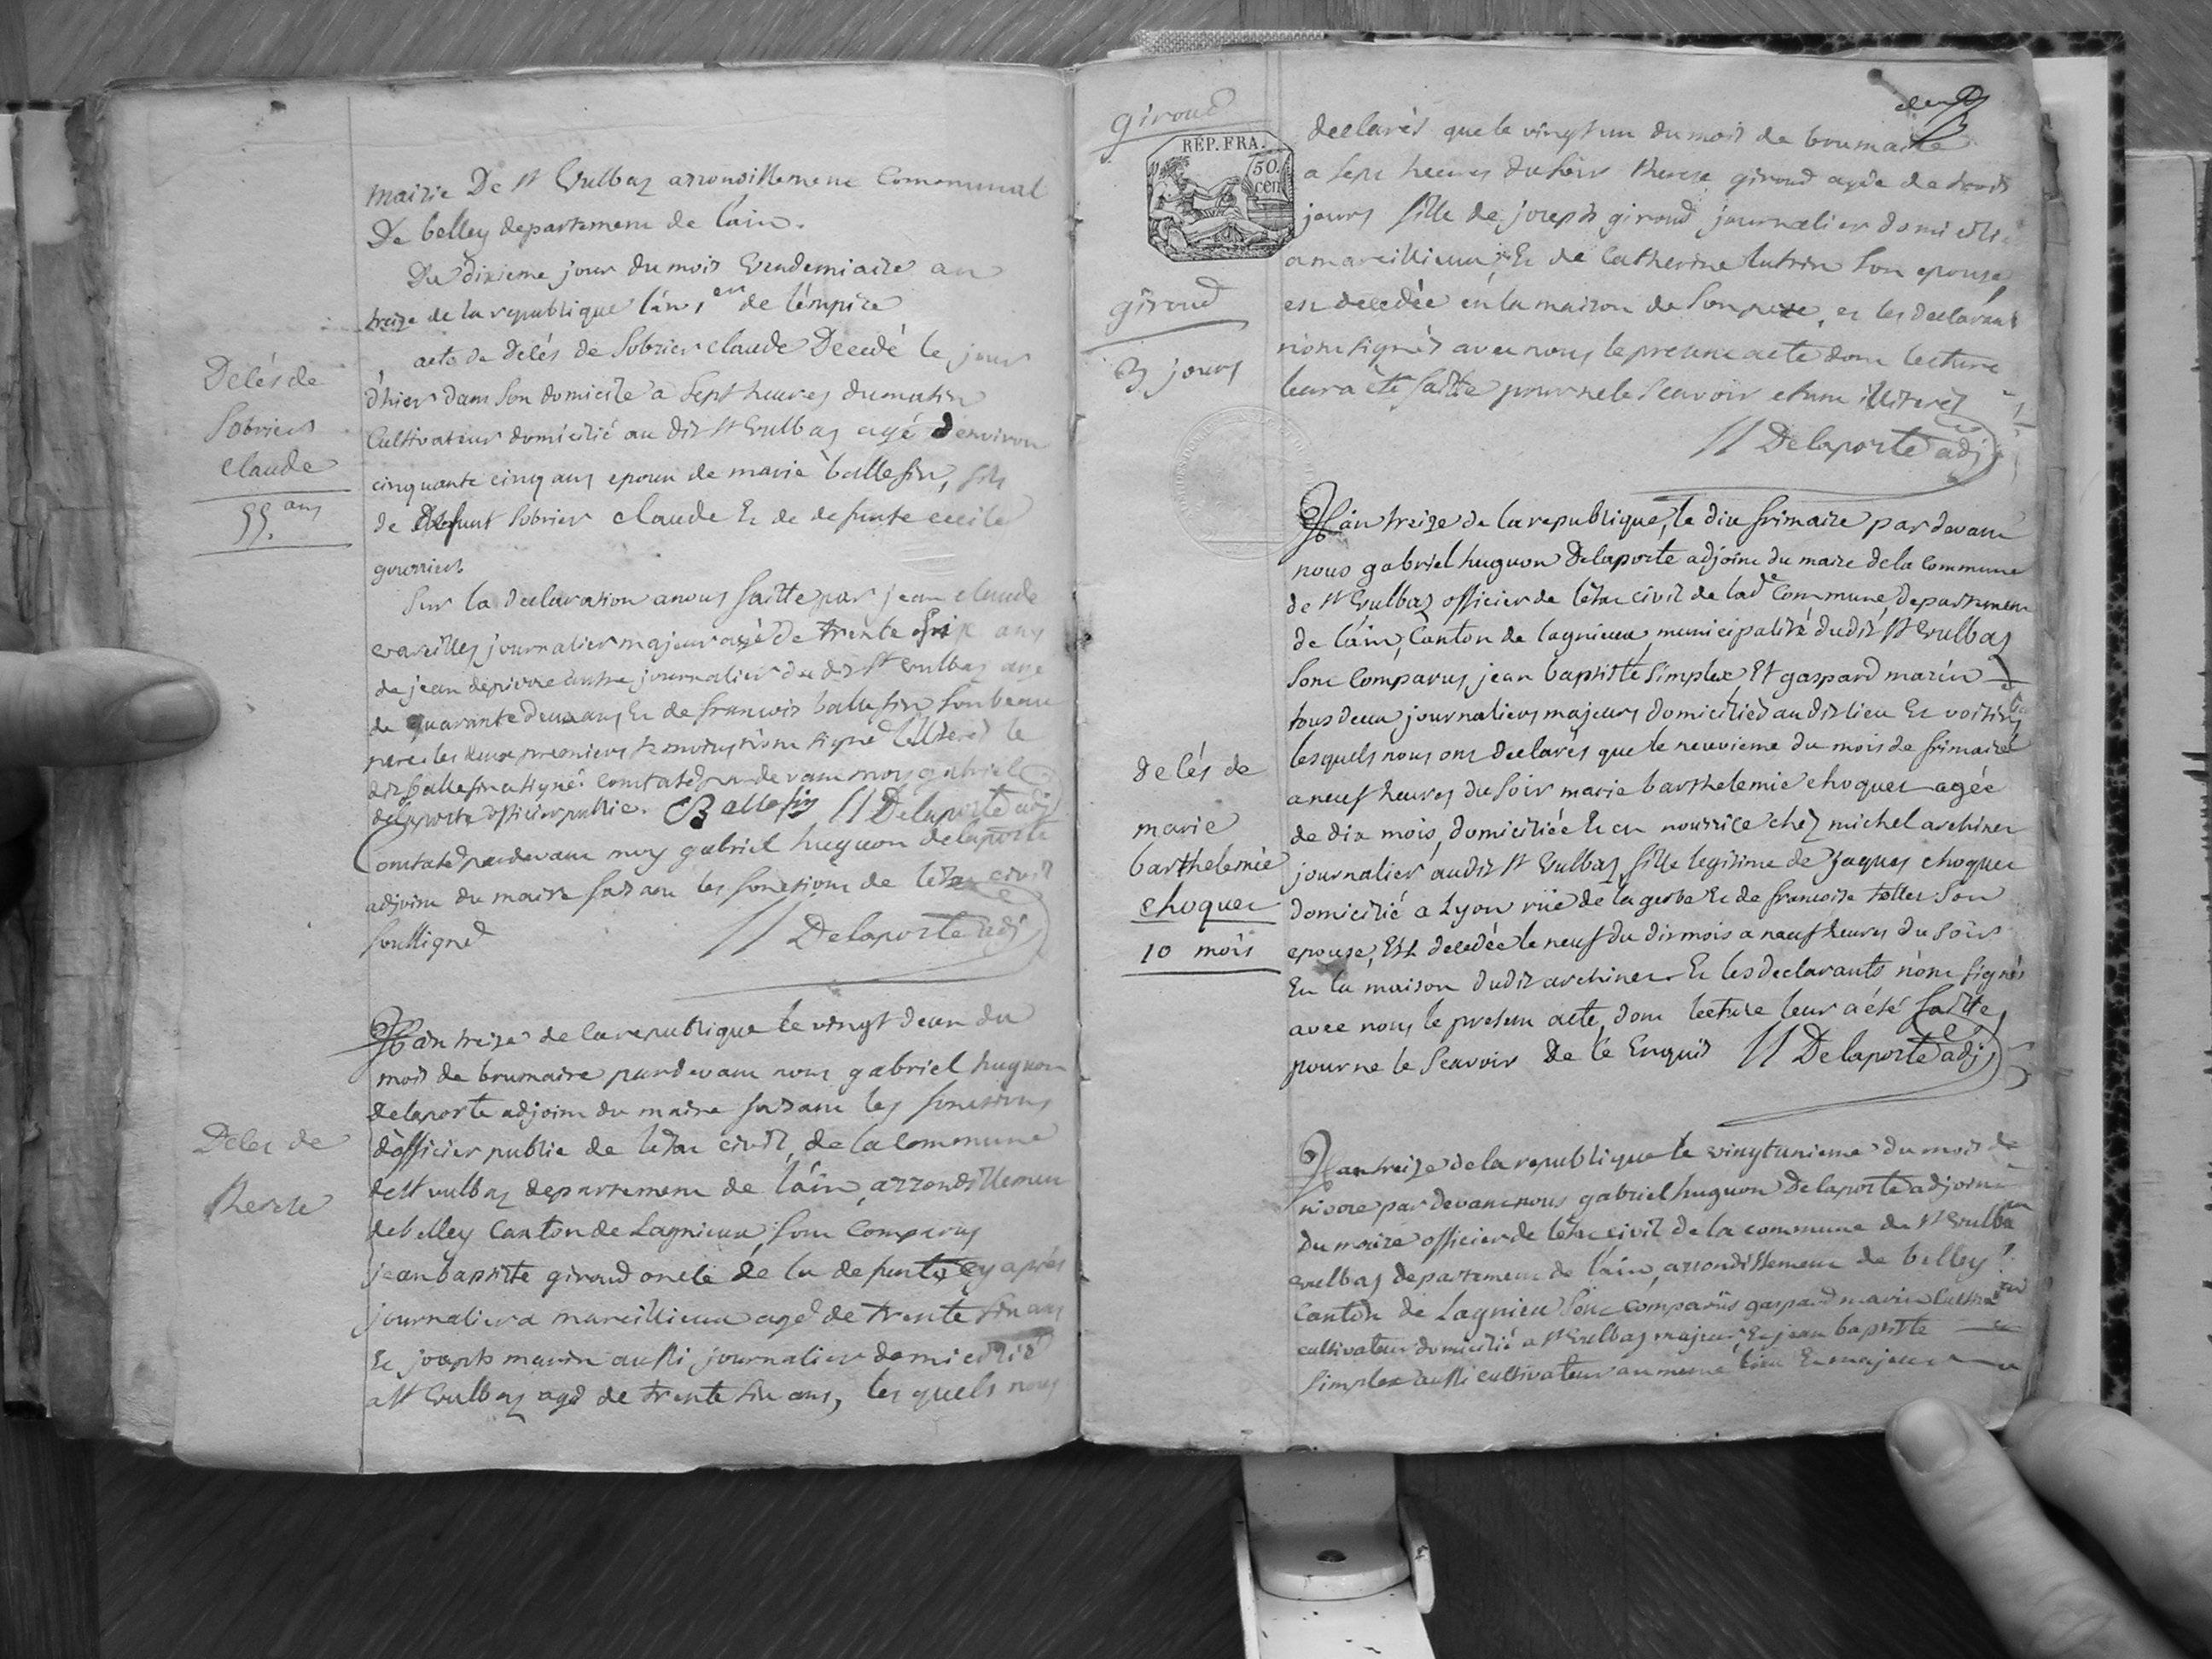 Mairie De St Vulbaz arrondissement Communal
De belley departement de l'ain.
Du dixieme jour du mois Vendemiaire an
treize de la republique l'an 1er de l'empire
Delés de
Sobrier
claude
55. ans
acte de Delés de Sobrier claude Decedé le jour
d'hier dans Son domicile a Sept heures du matin
Cultivateur domicilié au dit St Vulbaz agé d'environ
cinquante cinq ans epoux de marie ballefin, fils
de defunt Sobrier claude Et de defunte cecile
gourrier
Sur la declaration a nous faitte par jean claude
journalier majeur agé de trente six ans
de jean journalier du dit St Vulbaz agé
de quarante deux ans, Et de francois ballefin Son beau
pere les deux premiers temoins n'ont signé illiterés le
dit ballefin a signé. Constaté par devant moy gabriel
delaporte officier public. Ballefin H Delaporte adj
Constaté par devant moy gabriel huguon delaporte
adjoint du maire faisant les fonctions de l'etat civil
Soussigné H Delaporte adj
Delés de
therese
L'an treize de la republique le vingt deux du
mois de brumaire pardevant nous gabriel huguon
Delaporte adjoint du maire faisant les fonctions
d'officier public de l'etat civil, de la commune
de St vulbaz departement de l'ain, arrondissement
de belley Canton de Lagnieux, Sont Comparus
jean baptiste giroud oncle de la defunte cy après
journalier a marcillieux agé de trente six ans
Et joseph marin aussi journalier domicilié
a St Vulbaz agé de trente six ans, les quels nous
giroud
RÉP. FRA.
50 cen
giroud
3 jours
declarés que le vingt un du mois de brumaire
a Sept heures du Soir therese giroud agée de trois
jours fille de joseph giroud journalier domicilié
a marcillieux, Et de Catherine Son epouse,
est decedée en la maison de Son pere, et les declarants
n'ont signés avec nous le present acte dont lecture
leur a été faitte pour ne le Scavoir etant illiterés
H Delaporte adj
delés de
marie
barthelemie
choquet
10 mois
L'an treize de la republique, le dix frimaire par devant
nous gabriel huguon Delaporte adjoint du maire de la Commune
de St Vulbaz officier de l'etat civil de lade Commune, departement
de l'ain, Canton de lagnieux, municipalité dudit St Vulbaz
Sont Comparus, jean baptiste Simplex, Et gaspard marin
tous deux journaliers majeurs domiciliés au dit lieu Et voisins
lesquels nous ont declarés que le neuvieme du mois de frimaire
a neuf heures du Soir marie barthelemie choquet agée
de dix mois, domiciliée Et en nourrice chez michel archiner
journalier audit St Vulbaz, fille legitime de Jaques choquet
domicilié a Lyon rüe de la gerbe Et de francoise tollet Son
epouse, Est decedée le neuf du dit mois a neuf heures du Soir
En la maison dudit archiner Et les declarants n'ont signés
avec nous le present acte, dont lecture leur a été faitte,
pour ne le Scavoir De ce Enquis H Delaporte adj
L'an treize de la republique le vingtunieme du mois de
nivose par devant nous gabriel huguon Delaporte adjoint
du maire officier de l'etat civil de la commune de St Vulba
vulbas departement de l'ain, arrondissement de belley
Canton de Lagnieu Sont comparüs gaspard marin
cultivateur domicilié a St Vulbaz majeur, Et jean baptiste
Simplex aussi cultivateur au meme lieu Et majeur